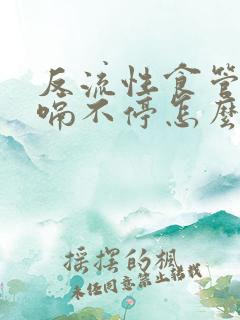 反流性食管
嗝不停怎麼
摇摆的枫
未经同意禁止转载